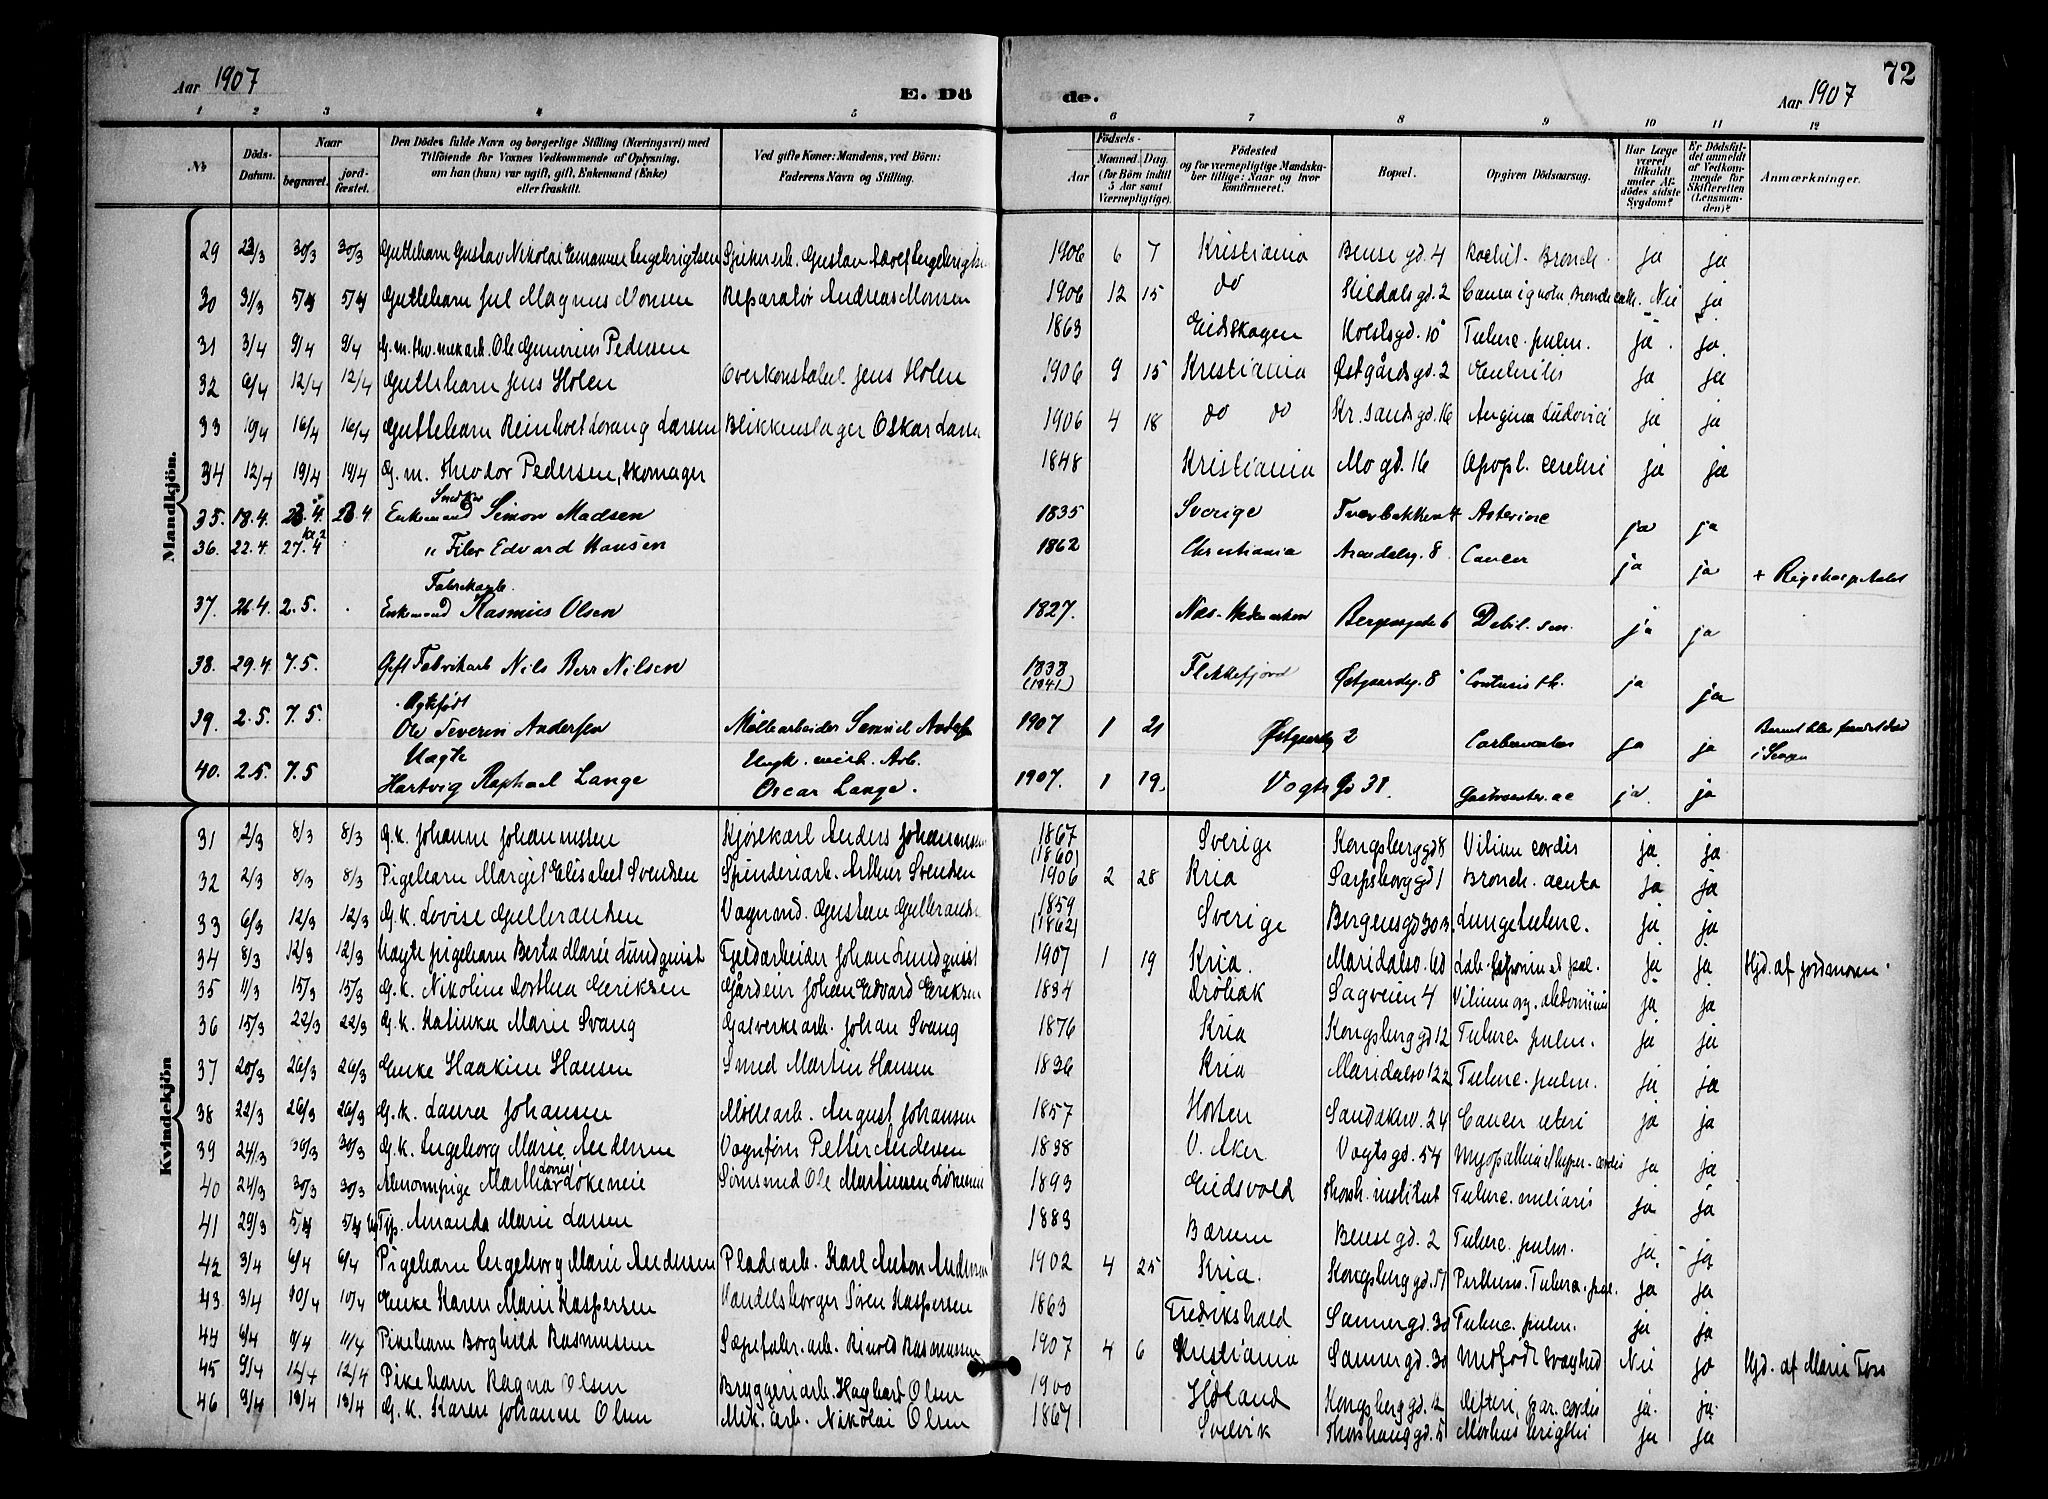 Aar 1907
E. Dö
de.
Aar 1907
72
1 2 3 4 5 6 7 8 9 10 11 12
No
Döds-Datum.
Naar
begravet.
jord-fæstet.
Den Dödes fulde Navn og borgerlige Stilling (Næringsvei) med
Tilföiende for Voxnes Vedkommende af Oplysning,
om han (hun) var ugift, gift, Enkemand (Enke)
eller fraskilt.
Ved gifte Koner: Mandens, ved Börn:
Faderens Navn og Stilling.
Födsels-
Aar
Maaned. Dag.
(for Börn indtil
5 Aar samt
Værnepligtige).
Födested
og for værnepligtige Mandska-
ber tillige: Naar og hvor
Konfirmeret.
Bopæl.
Opgiven Dödsaarsag.
Har Læge
været
tilkaldt
under Af-
dödes sidste
Sygdom?
Er Dödsfal-
det anmeldt
af Vedkom-
mende for
Skifteretten
(Lensman-
den)?
Anmærkninger.
Mandkjön.
29 23/3 30/3 30/3 Guttebarn Gustav Nikolai Emanuel Engebrigtsen Gustav Adolf Engebrigtsen 1906 6 7 Kristiania Bensegd. 4 Rachit. Bronch. ja ja
30 31/3 5/4 5/4 Guttebarn Jul Magnus Monsen Reparatør Andreas Monsen 1906 12 15 do Hildalsgd. 2 Causa ignota, Bronch. Nei ja
31 3/4 9/4 9/4 G. m. Ole Gunerius Pedersen 1863 Eidskogen Holstsgd. 10 Tuberc. pulm. ja ja
32 6/4 12/4 12/4 Guttebarn Jens Holen Overkonstabel Jens Holen 1906 9 15 Kristiania Østgårdsgd. 2 Enteritis ja ja
33 10/4 16/4 16/4 Guttebarn Reinholt Lorang Larsen Blikkenslager Oskar Larsen 1906 4 18 do do Kr.sandsgd. 16 Angina Ludovici ja ja
34 12/4 19/4 19/4 G. m. Theodor Pedersen, Skomager 1848 Kristiania Mogd. 16 Apopl. cerebri ja ja
35. 18.4. 23.4. 23.4 Enkemand Snedker Simon Madsen 1835 Sverige Tverbakken 4 ja ja
36. 22.4. 27.4 " Filer Edvard Hansen 1862 Christiania Arendalsg. 8 Cancer ja ja + Rigshospitalet
37. 26.4. 2.5. Enkemand Fabrikarb. Rasmus Olsen 1827. Næs. Hedemarken Bergensgade 6 Debil. sen. ja ja
38. 29.4. 7.5. Gift Fabrikarb Nils Berr Nilsen 1838 (1841) Flekkefjord Østgaardsg. 8 ja ja
39. 2.5. 7.5. Ægtefødt Ole Severin Andersen Møllearbeider 1907 1 21 Østgaardsg 2 ja ja Barnet blev fundet død i Sengen
40. 2.5. 7.5 Uægte Hartvig Raphael Lange Oscar Lange. 1907. 1 19 Vogts Gd 31 Gastroenter. ac ja. ja
Kvindekjön
31 2/3 8/3 8/3 G. k. Johanne Johannessen Kjørekarl Anders Johannesen 1867 (1860) Sverige Kongsberggd 8 Vitium cordis ja ja
32 2/3 8/3 8/3 Pigebarn Margit Elisabet Svendsen Spinderiarb. Arthur Svendsen 1906 2 28 Kria Sarpsborggd 1 Bronch. acuta ja ja
33 6/3 12/3 12/3 G. k. Lovise Gulbrandsen Vognmd. Gusten Gulbrandsen 1859 (1862) Sverige Bergensgd 30 B. Lungetuberc. ja ja
34 8/3 12/3 12/3 Uægte pigebarn Berta Marie Lundqvist Fjeldarbeider Johan Lundqvist 1907 1 19 Kria. Maridalsv. 60 ja ja Hjd. af jordmoren.
35 11/3 15/3 15/3 G. k. Nikoline Dorthea Eriksen Gårdeier Johan Edvard Eriksen 1834 Drøbak Sagveien 4 Vitium org. abdominium ja ja
36 15/3 22/3 22/3 G. k. Katinka Marie Svang Gasverksarb. Johan Svang 1876 Kria Kongsberggd 12 Tuberc. pulm. ja ja
37 20/3 26/3 26/3 Enke Haakine Hansen Smed Martin Hansen 1836 Kria Maridalsv 122 Tuberc. pulm. ja ja
38 22/3 26/3 26/3 G. k. Laura Johansen Møllearb. August Johansen 1857 Horten Sandakerv. 24 Cancer uteri ja ja
39 24/3 30/3 30/3 G. k. Ingeborg Marie Andersen Vognfører Petter Andersen 1838 V. Aker Vogtsgd. 54 ja ja
40 24/3 30/3 30/3 Ole Martinsen 1893 Eidsvold Thorsh. institut Tuberc. miliaris ja ja
41 29/3 5/4 5/4 Amanda Marie Larsen 1883 Bærum Bensegd. 2 Tuberc. pulm. ja ja
42 3/4 6/4 6/4 Pigebarn Ingeborg Marie Andersen Pladearb. Karl Anton Andersen 1902 4 25 Kria. Kongsberggd. 11 Tuberc. pul. ja ja
43 3/4 10/4 10/4 Enke Karen Marie Kaspersen Handelsborger Søren Kaspersen 1863 Fredrikshald Sannergd. 30 Tuberc. pulm. ja ja
44 6/4 11/4 11/4 Pikebarn Borghild Rasmussen Sæpefabr. arb. Rinold Rasmussen 1907 4 6 Kristiania Sannergd. 30 Medfødt svaghed Nei ja Hjd. af Marie
45 9/4 12/4 12/4 Pikebarn Ragna Olsen Bryggeriarb. Hagbart Olsen 1900 Høland Kongsberggd. 12 Difteri, par. cordis ja ja
46 9/4 13/4 13/4 G. k. Karen Johanne Olsen Mek. arb. Nikolai Olsen 1867 Svelvik Thorshauggd. 5 Morbus Brightii ja ja